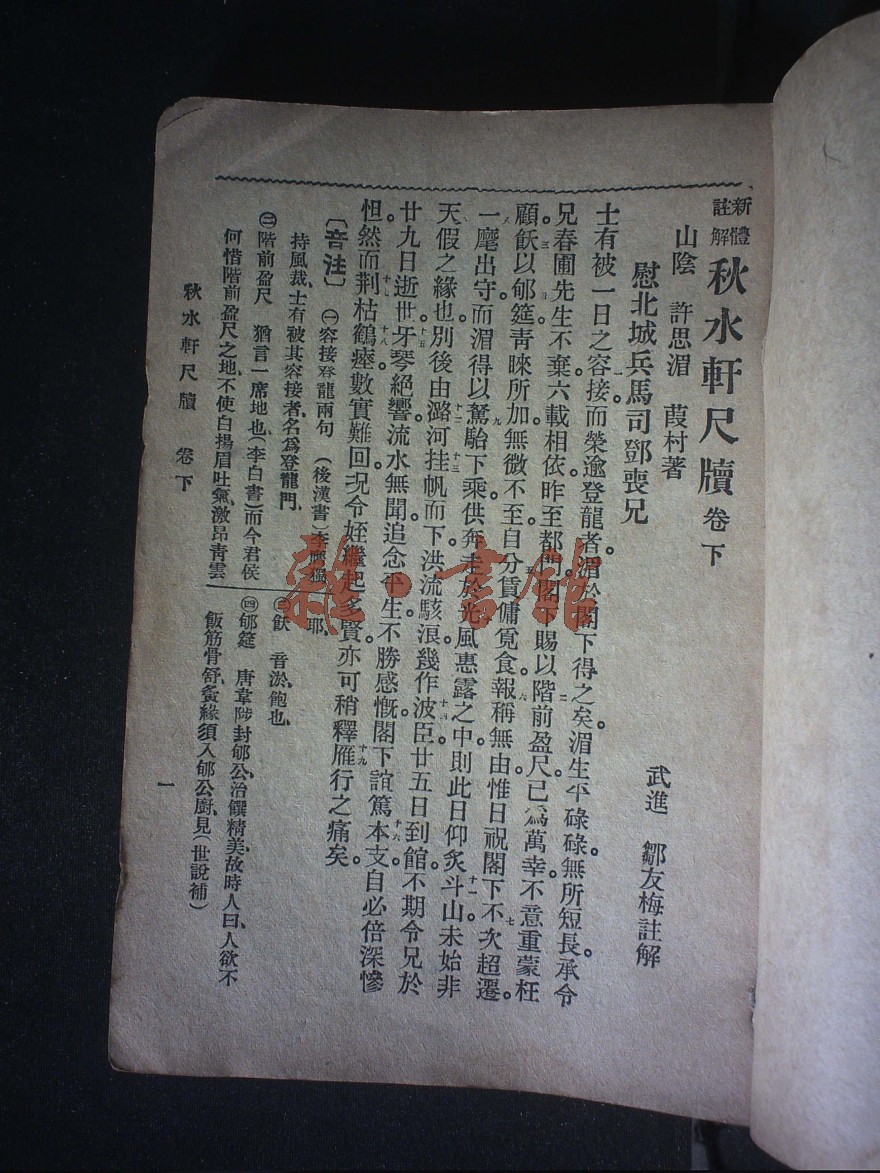 新體註解 秋水軒尺牘 卷下
山陰 許思湄 葭村著
武進 鄒友梅註解
慰北城兵馬司鄧喪兄
士有被一日之容接而榮逾登龍者。湄於閣下得之矣。湄生平碌碌。無所短長。承令
兄春圃先生不棄。六載相依。昨至都門。閣下賜以階前盈尺。已為萬幸。不意重蒙枉
顧。飫以郇筵。青睞所加。無微不至。自分賃傭覓食。報稱無由。惟日祝閣下不次超遷。
一麾出守。而湄得以駑駘下乘。供奔走於光風惠露之中。則此日仰炙斗山。未始非
天假之緣也。別後由潞河挂帆而下。洪流駭浪。幾作波臣。廿五日到館。不期令兄於
廿九日逝世。牙琴絕響。流水無聞。追念平生。不勝感慨。閣下誼篤本支。自必倍深慘
怛。然而荆枯鶴瘞。數實難回。况令姪繼起多賢。亦可稍釋雁行之痛矣。
〔音注〕 ㊀容接登龍兩句 (後漢書)李膺獨
持風裁、士有被其容接者、名爲登龍門、
㊁階前盈尺 猶言一席地也、(李白書)而今君侯
何惜階前盈尺之地、不使白揚眉吐氣、激昂青雲
耶、
㊂飫 音淤、飽也、
㊃郇筵 唐韋陟封郇公、治饌精美、故時人曰、人欲不
飯筋骨舒、夤緣須入郇公廚、見(世說補)
秋水軒尺牘 卷下 一
雜·書館